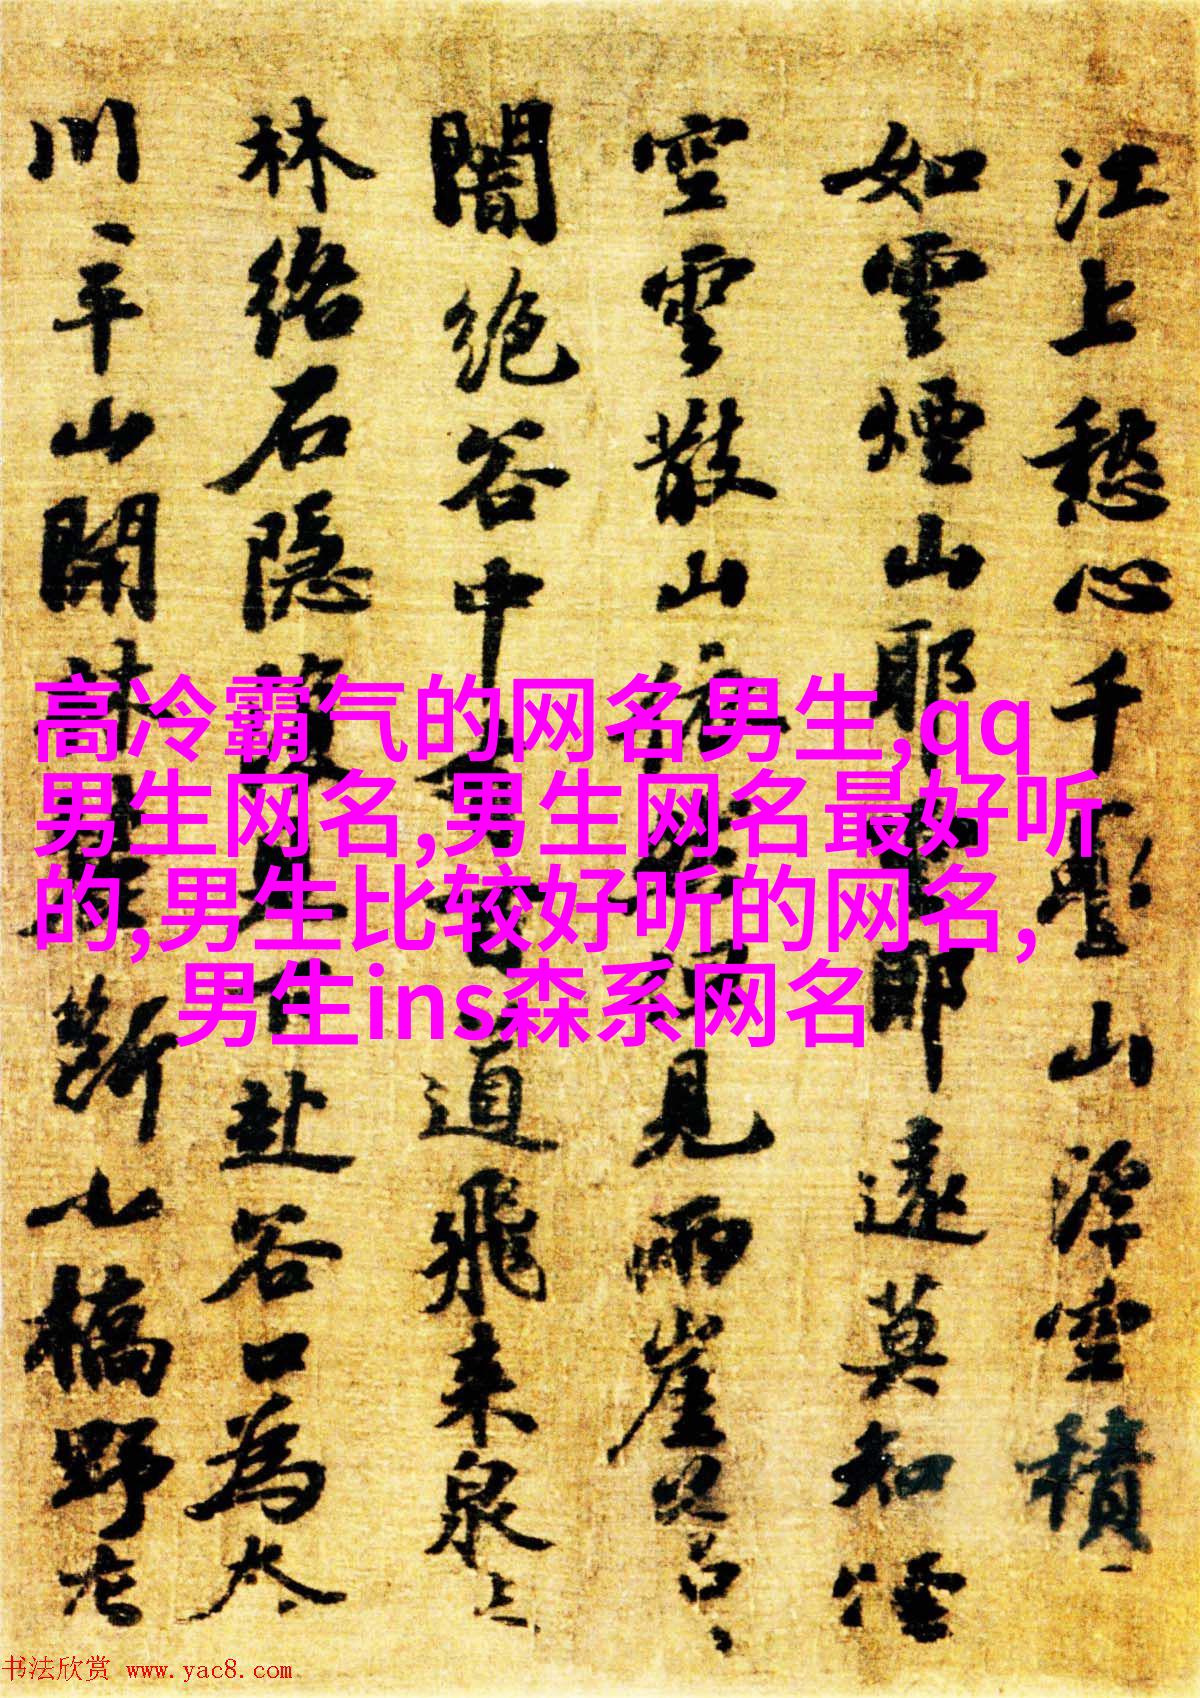 江上愁心千疊山浮空積
如雲煙山耶耶遠莫知煙
空雲散山依見兩崖
闇絕谷中道飛來泉
林絡石隱赴谷口為
川平山開林斷小橋野
高冷霸气的网名男生,qq
男生网名,男生网名最好听
的,男生比较好听的网名,
男生ins森系网名
书法欣赏 www.yac8.com